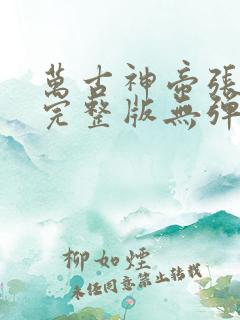 萬古神壺張
完整版無彈
柳如煙
未經同意禁止轉載